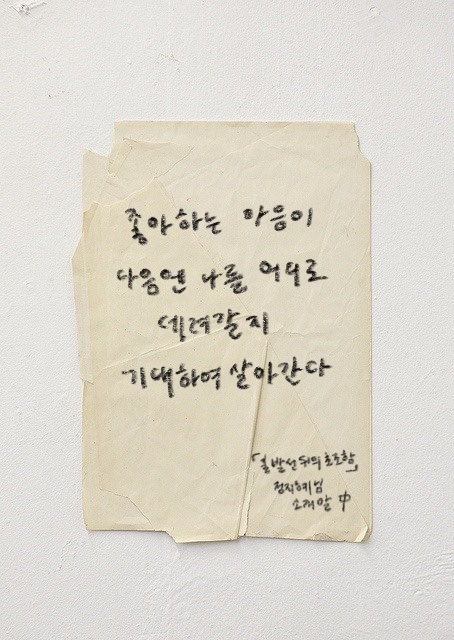 좋아하는 마음이
다음엔 나를 어디로
데려갈지
기대하며 살아간다
「출발선 뒤의 초조함」
정지혜님
소개말 中